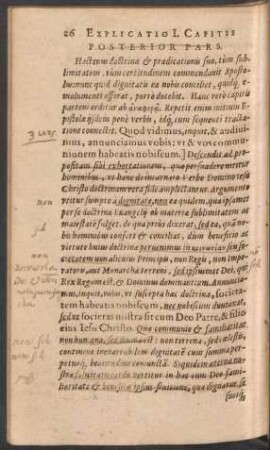 26 EXPLICATIO I. CAPITIS
POSTERIOR PARS.
Hactenus doctrinæ & prædicationis suæ, tùm sub-
limitatem, tùm certitudinem commendavit Aposto-
lus: nunc quid dignitatis ea nobis conciliet, quidq; e-
molumenti afferat, porrò docebit. Hanc verò capitis
partem orditur ab
Repetit enim initium E-
pistolæ ijsdem penè verbis, idq; cum sequenti tracta-
tione connectit. Quod vidimus, inquit, & audivi-
mus, annunciamus vobis: vt & vos commu-
nionem habeatis nobiscum.] Descendit ad pro-
positam sibi exhortationem, qua persuadere nititur
hominibus, vt hanc de incarnato Verbo Domino Iesu
Christo doctrinam vera fide amplectantur. Argumento
vtitur sumpto a dignitate, non ea quidem, quâ ipsam
per se doctrina Euangelij ob materiæ sublimitatem ac
maiestatem fulget, de qua prius dixerat, sed ea, quam
hominibus confert & conciliat, dum beneficio ac
virtute huius doctrinæ
societatem non alicuius Principis, non Regis, non Impe-
ratoris, aut Monarchæ terreni, sed ipsiusmet Dei, qui
Rex Regum est, & Dominus dominantium. Annuncia-
mus, inquit, vobis, vt suscepta hac doctrina, societa-
tem habeatis nobiscum, nec nobiscum duntaxat,
sed et societas nostra sit cum Deo Patre, & fi-
lio eius Iesu Christo. Quæ communio & familiaritas
non humana, sed divina est: non terrena, sed cælestis,
continens inenarrabilem dignitatem cum summa per-
petuaq; beatitudine coniunctam. Siquidem æterna no-
stra salutis cardo vertitur in hac cum Deo fami-
liaritate & beneficio ipsius fruitione, qua dignatur se
non
non